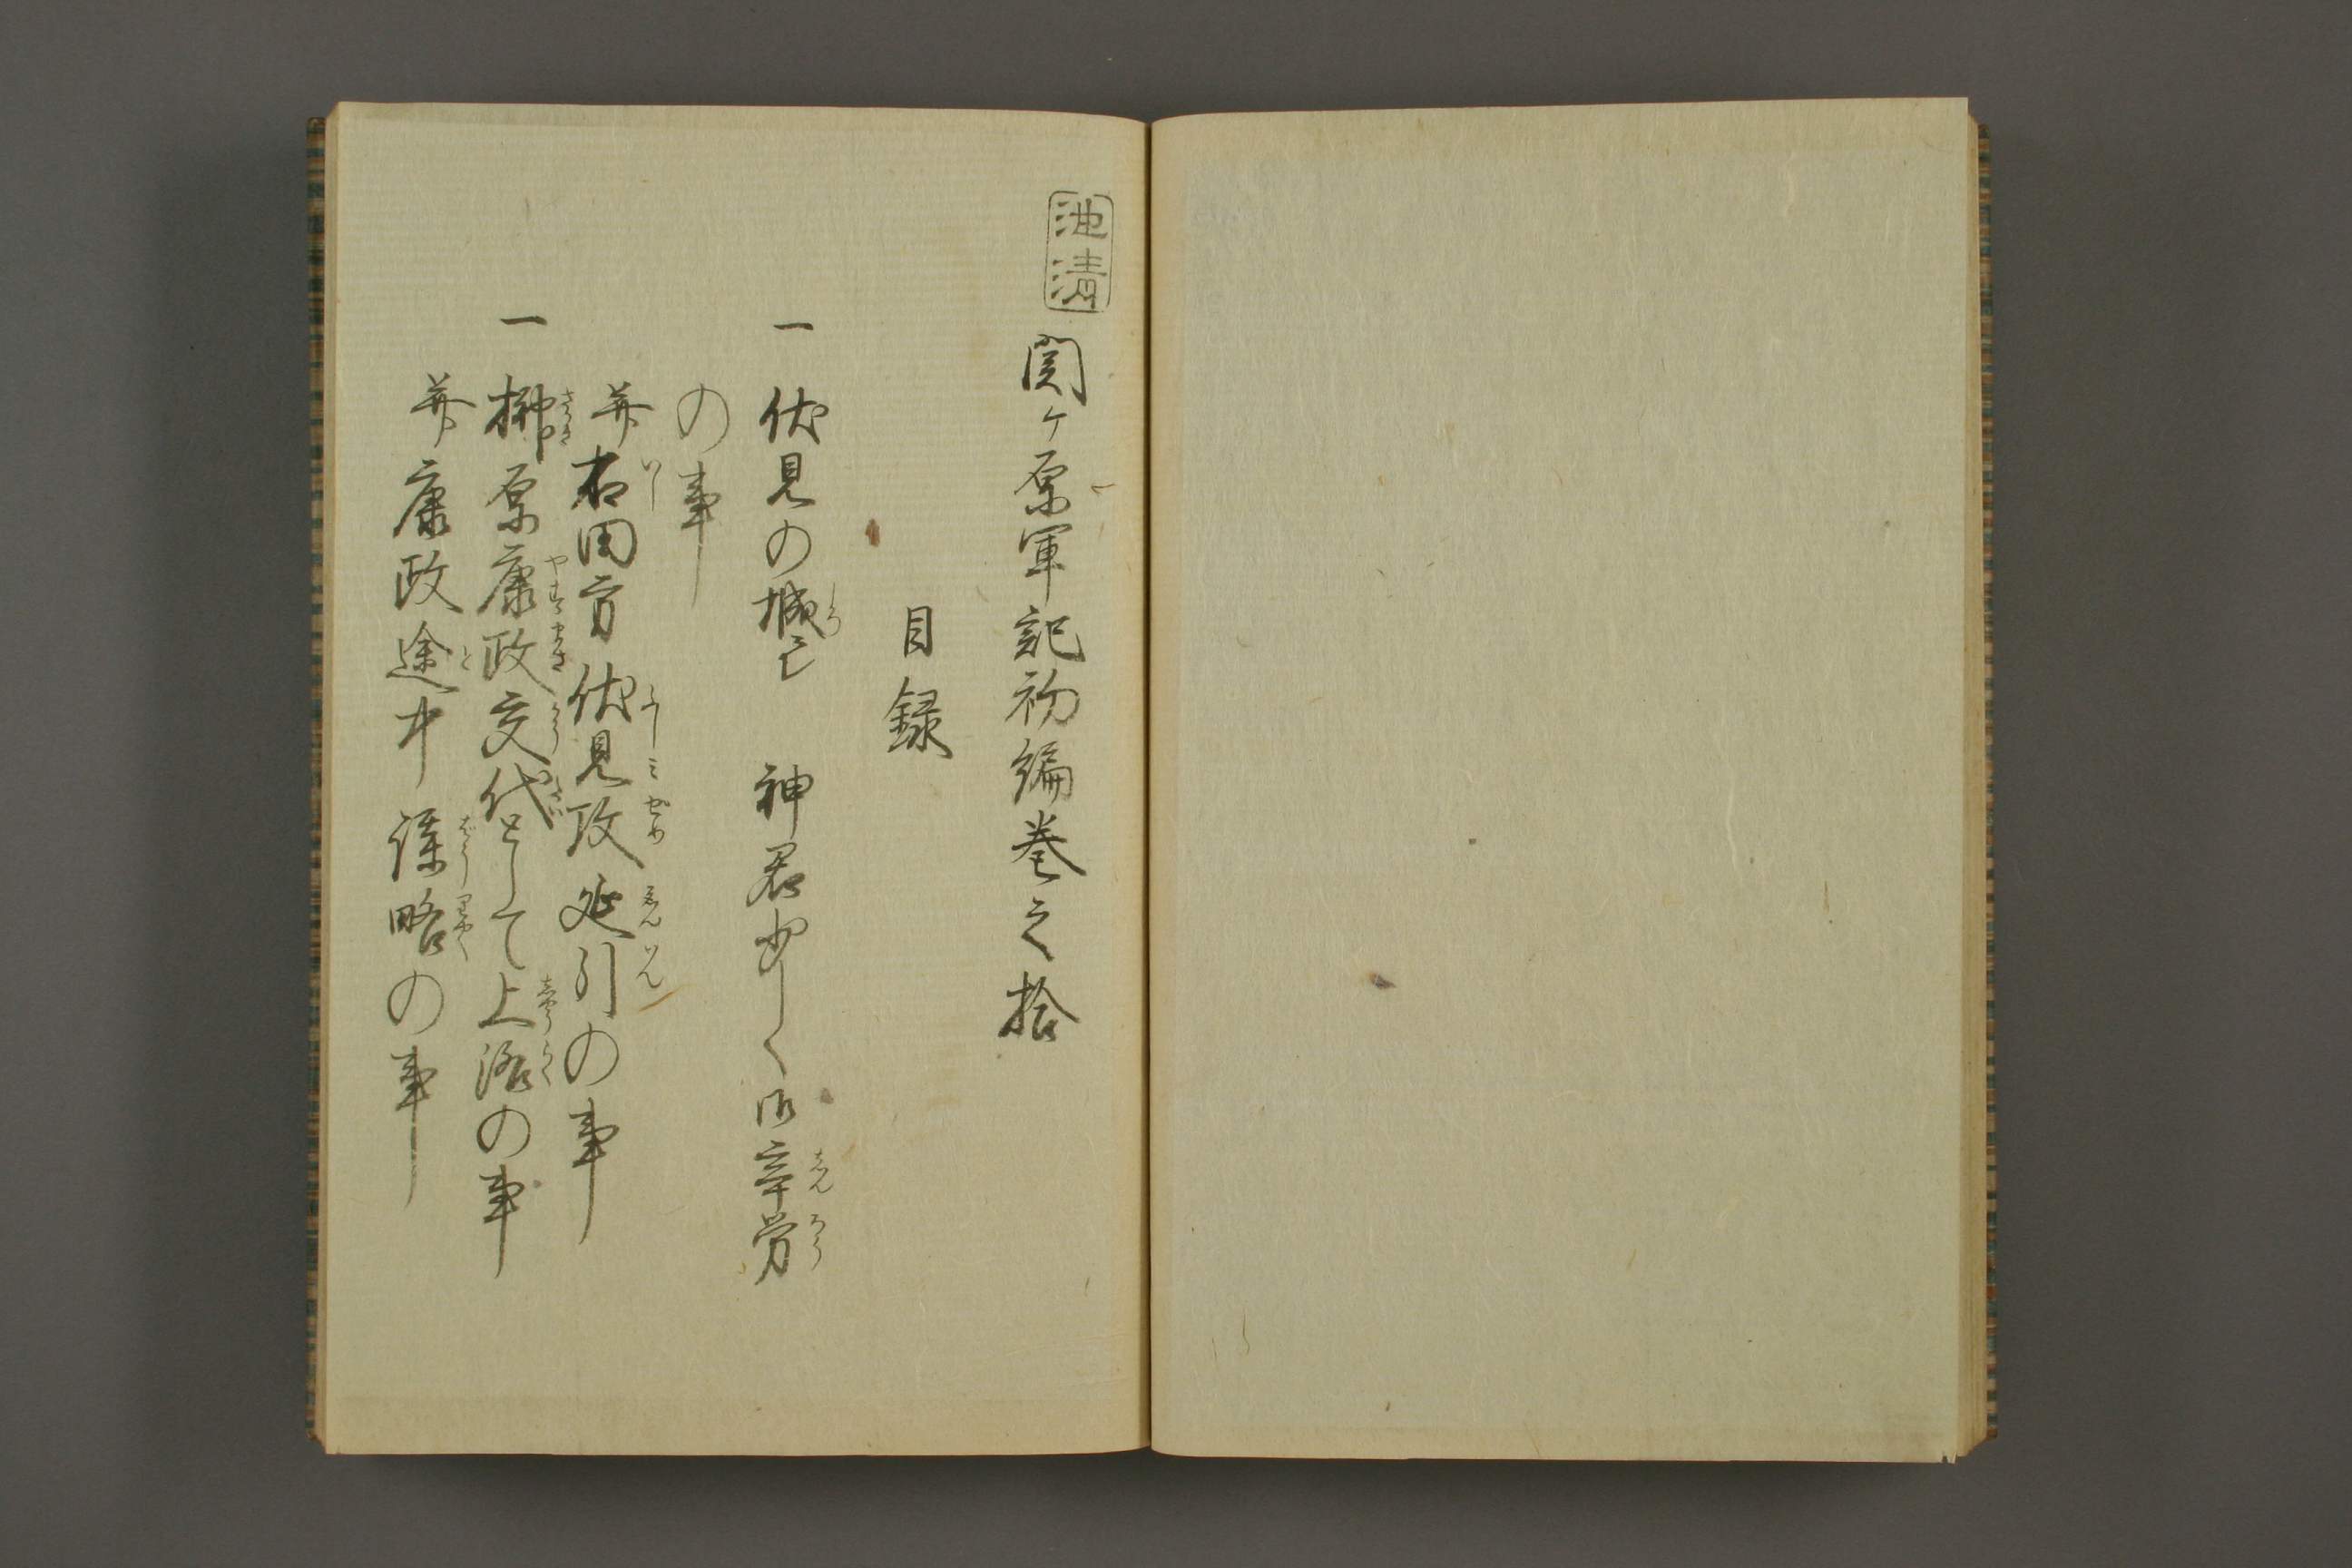 池清
関ヶ原軍記初編巻之拾
目録
一 伏見の城 神君しく御辛労
の事
并石田方伏見攻延引の事
一 榊原康政交代として上洛の事
并康政途中謀略の事